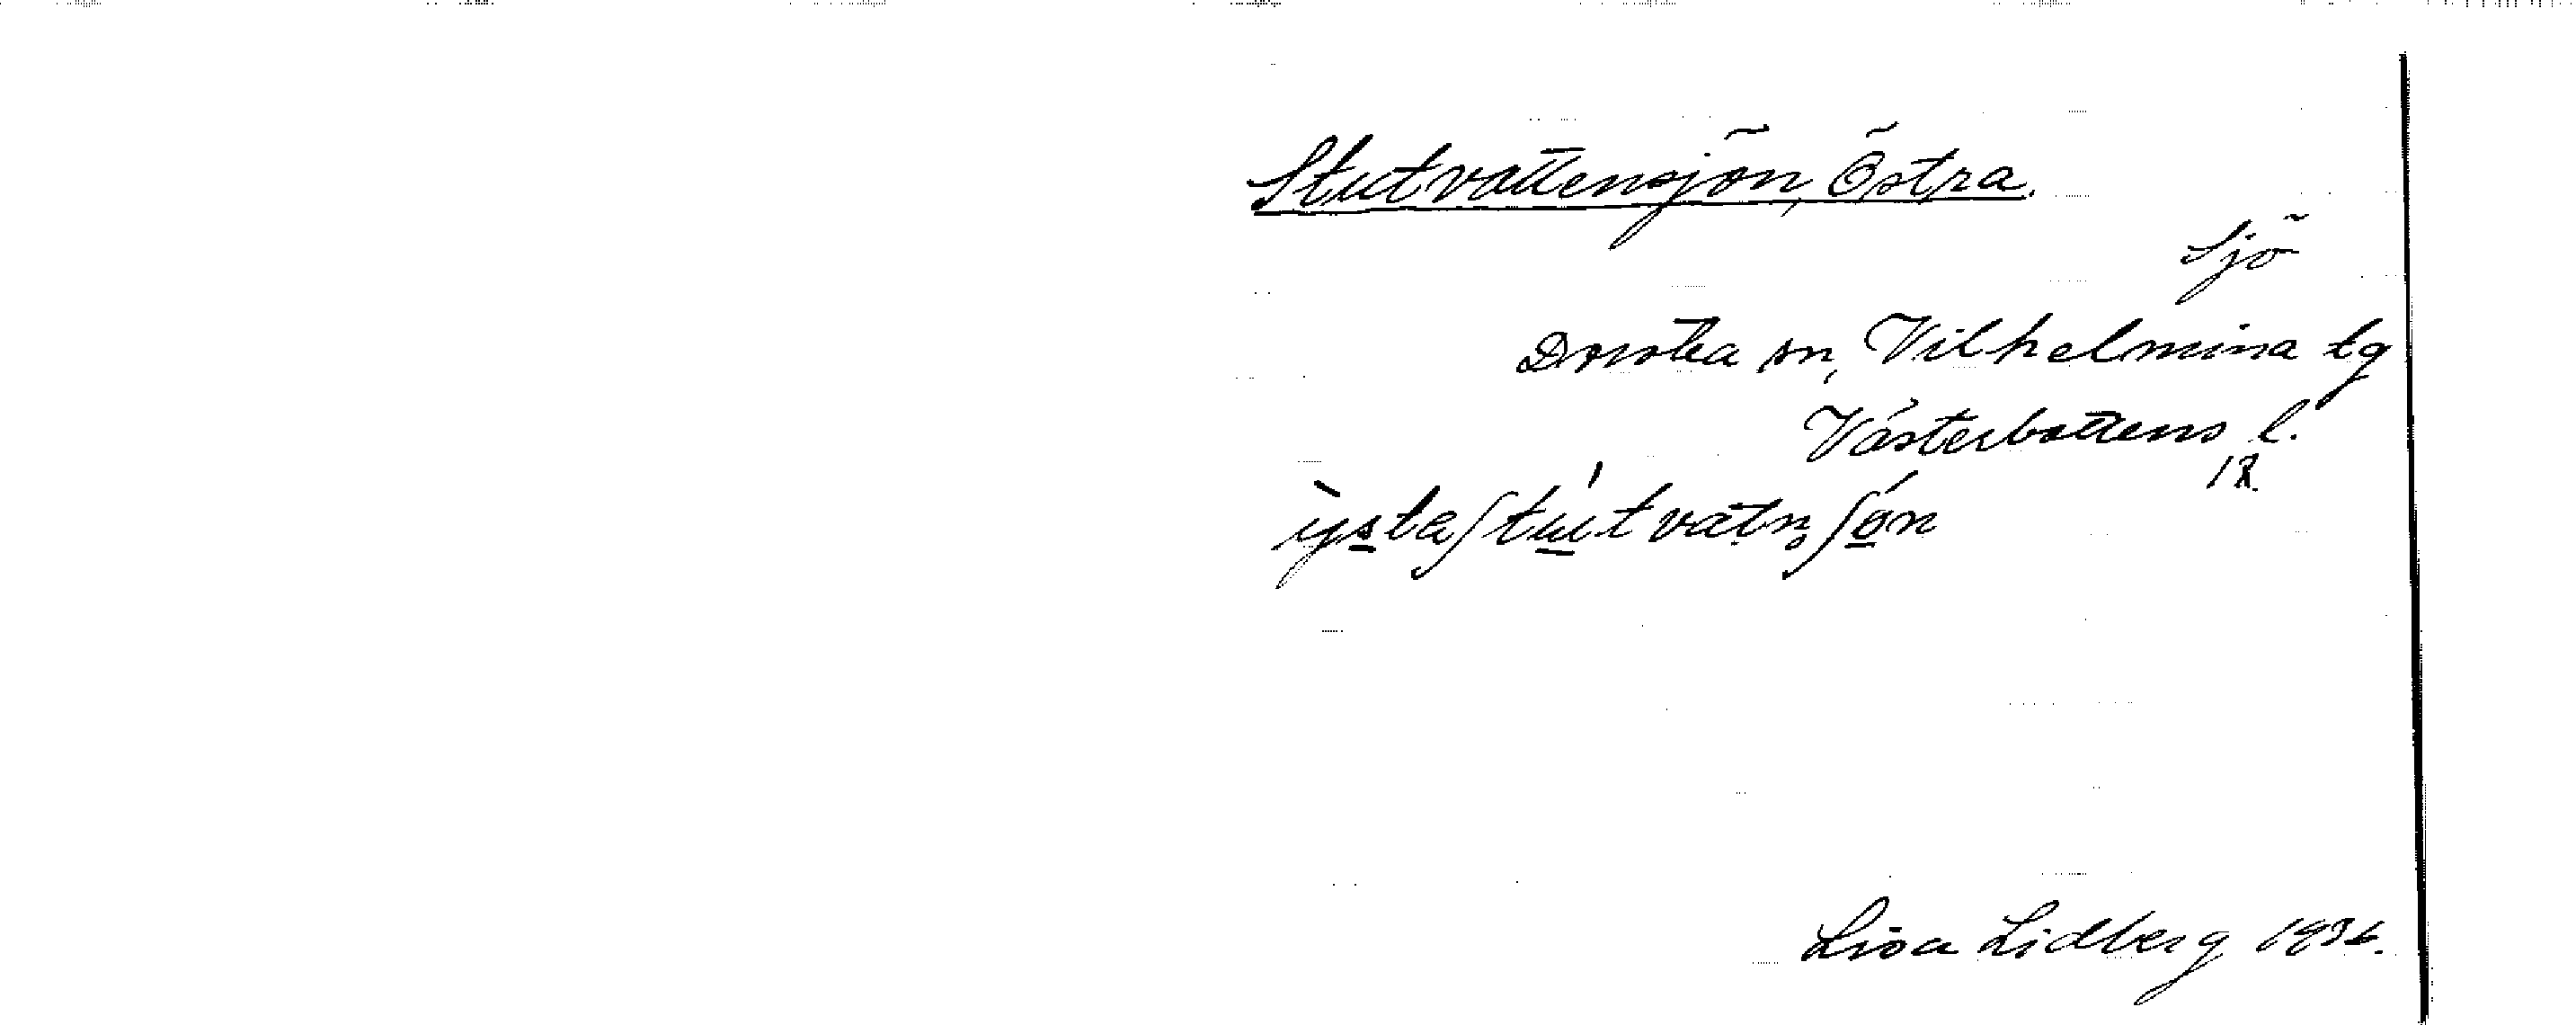 Stutvattensjön, Östra.
Sjö
Dorotea sn, Vilhelmina tg
Västerbottens l.
12.
Lisa Lidberg 1936.